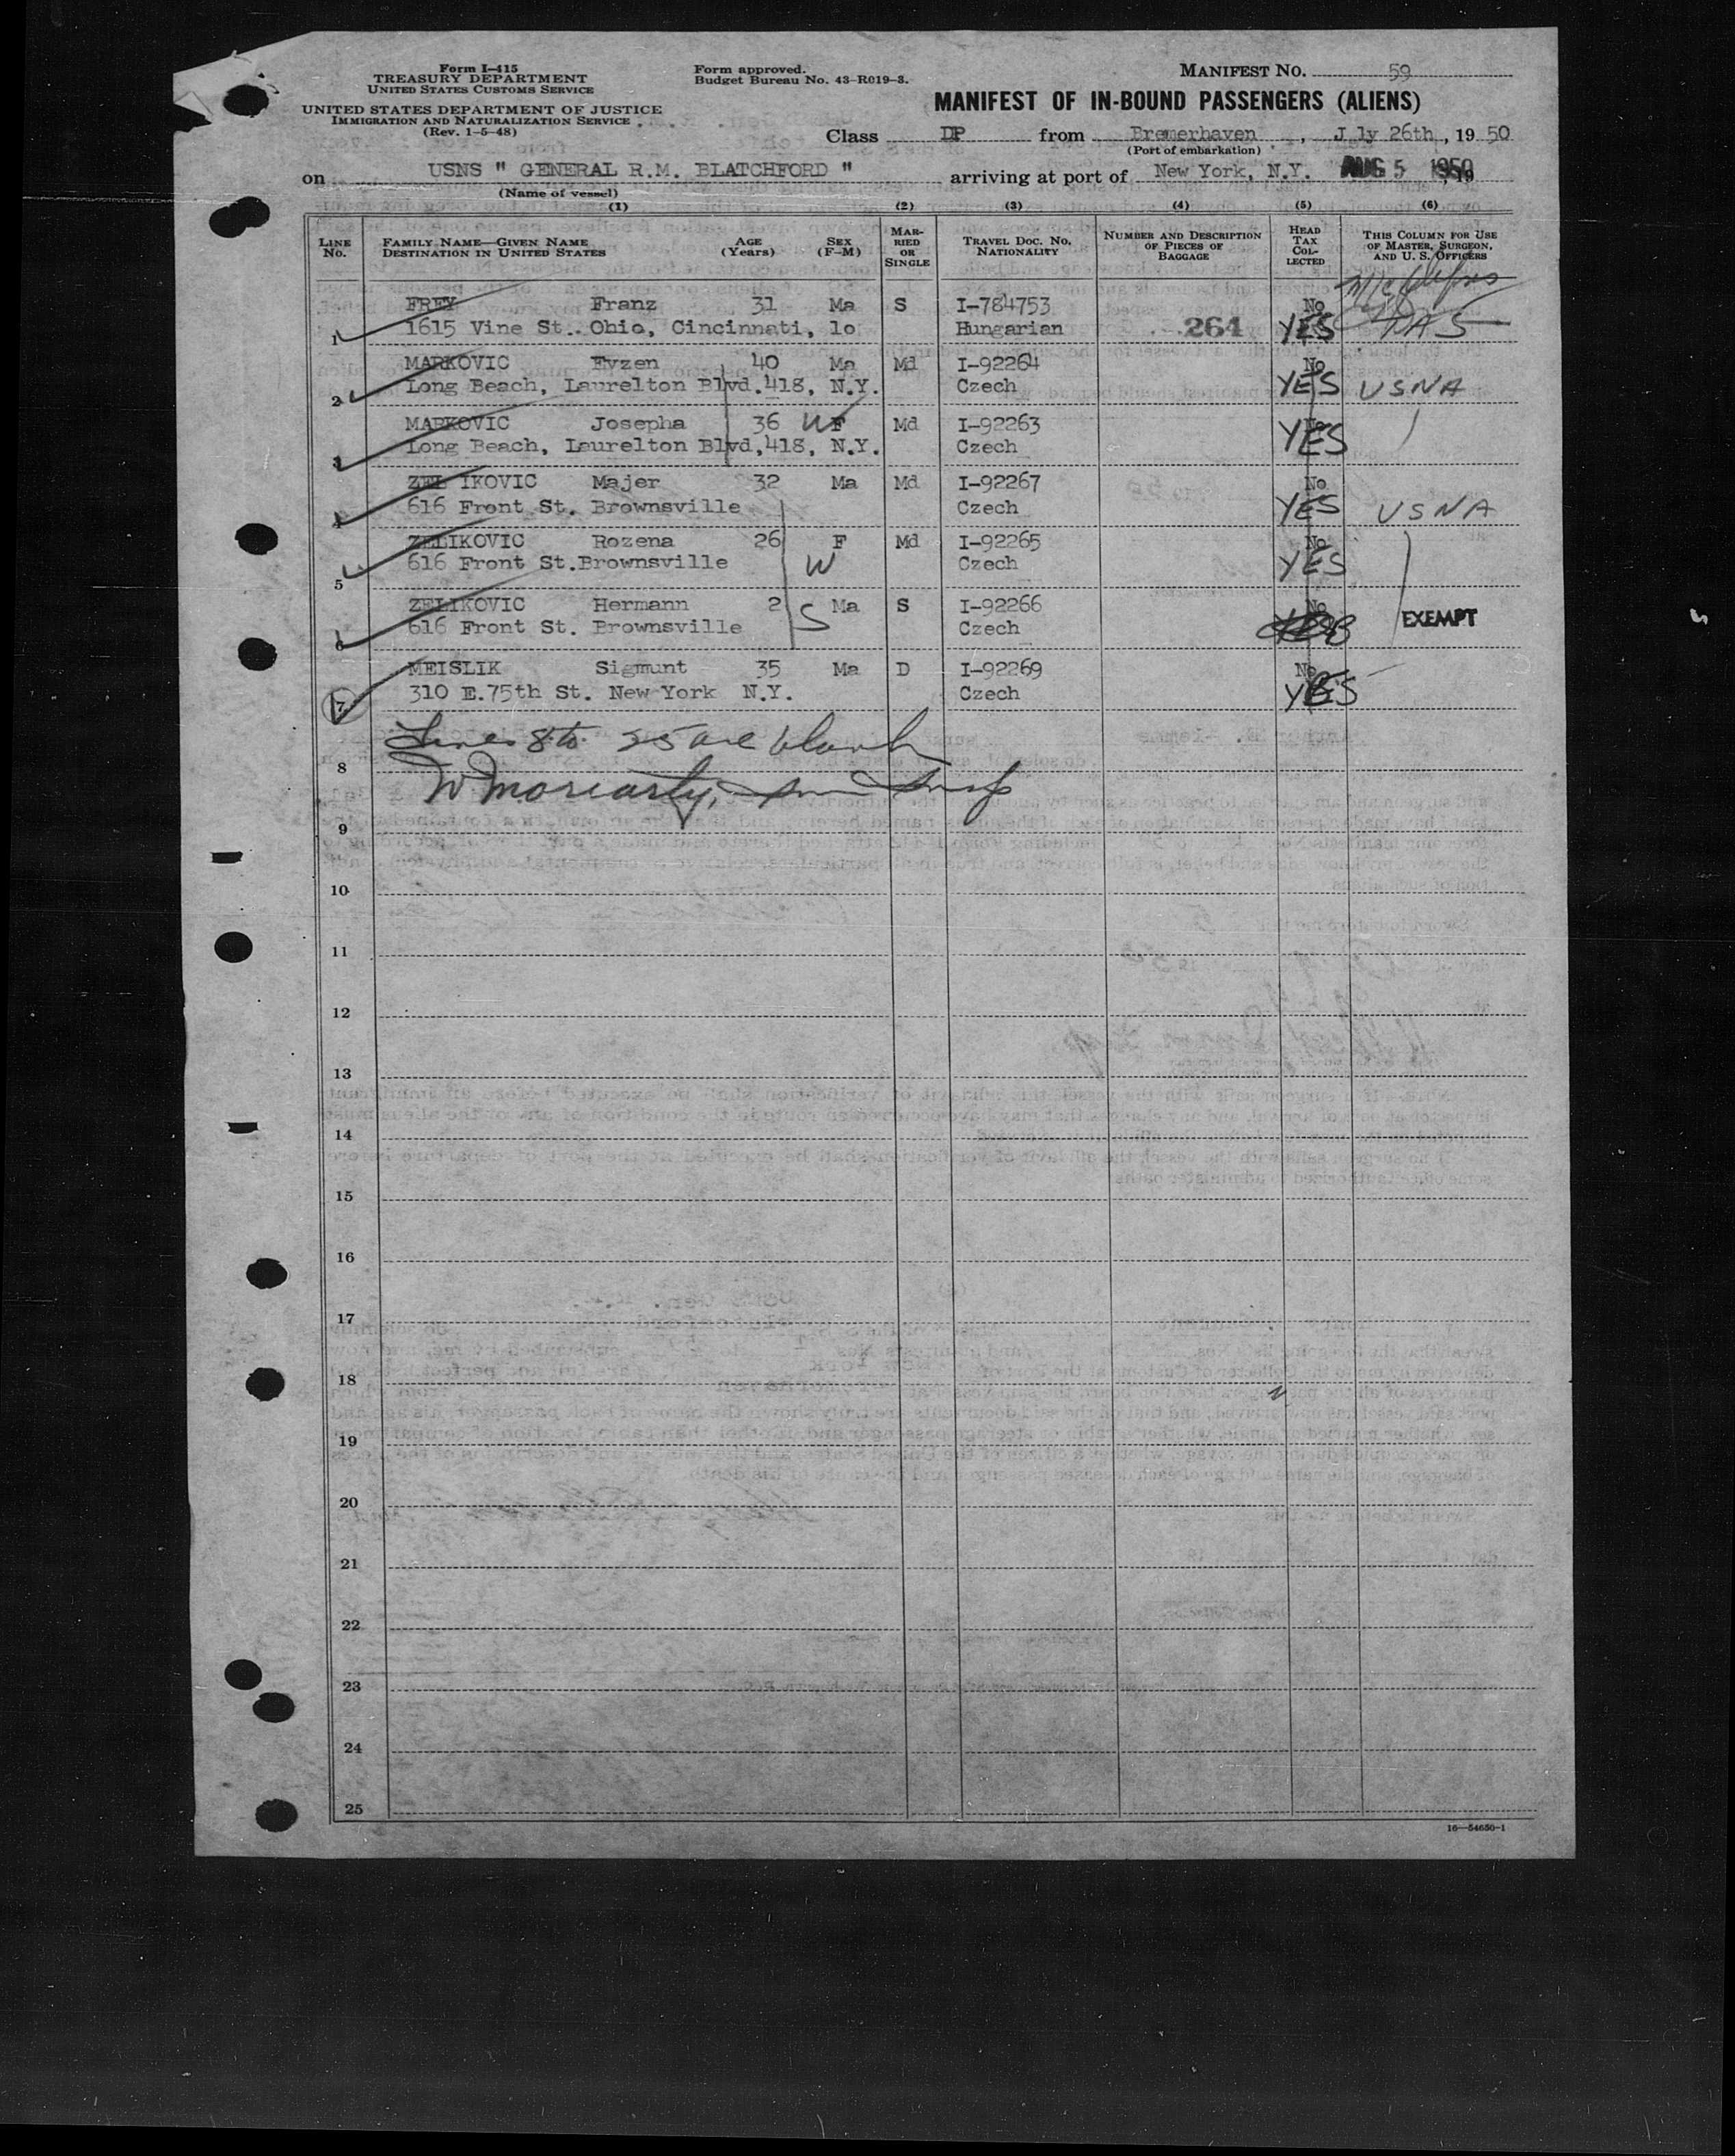 Form I-415
TREASURY DEPARTMENT
UNITED STATES CUSTOMS SERVICE
UNITED STATES DEPARTMENT OF JUSTICE
IMMIGRATION AND NATURALIZATION SERVICE
(Rev. 1-5-48)
Form approved.
Budget Bureau No. 43-R019-3.
MANIFEST NO. 59
MANIFEST OF IN-BOUND PASSENGERS (ALIENS)
Class DP from Bremerhaven, J ly 26th, 19 50
(Port of embarkation)
on USNS " GENERAL R.M. BLATCHFORD " arriving at port of New York, N.Y. AUG 5 1950, 19
(Name of vessel)
(1) (2) (3) (4) (5) (6)
LINE NO. FAMILY NAME—GIVEN NAME DESTINATION IN UNITED STATES AGE (YEARS) SEX (F-M) MARRIED OR SINGLE TRAVEL DOC. NO. NATIONALITY NUMBER AND DESCRIPTION OF PIECES OF BAGGAGE HEAD TAX COLLECTED THIS COLUMN FOR USE OF MASTER, SURGEON, AND U. S. OFFICERS
FREY Franz 31 Ma S I-784753 No
1 1615 Vine St.. Ohio, Cincinnati, 10 Hungarian 264 YES
MARKOVIC Evzen 40 Ma Md I-92264 No
2 Long Beach, Laurelton Blvd.418, N.Y. Czech YES USNA
MARKOVIC Josepha 36 W F Md I-92263
3 Long Beach, Laurelton Blvd,418, N.Y. Czech YES
ZEL IKOVIC Majer 32 Ma Md I-92267 No
4 616 Front St. Brownsville Czech YES USNA
ZELIKOVIC Rozena 26 F Md I-92265 No
5 616 Front St.Brownsville W Czech YES
ZELIKOVIC Hermann 2 S Ma S I-92266 No
6 616 Front St. Brownsville Czech EXEMPT
MEISLIK Sigmunt 35 Ma D I-92269 No
7 310 E.75th St. New York N.Y. Czech YES
Lines 8 to 25 are blank
8
W Moriarty,
9
10
11
12
13
14
15
16
17
18
19
20
21
22
23
24
25
16—54650-1